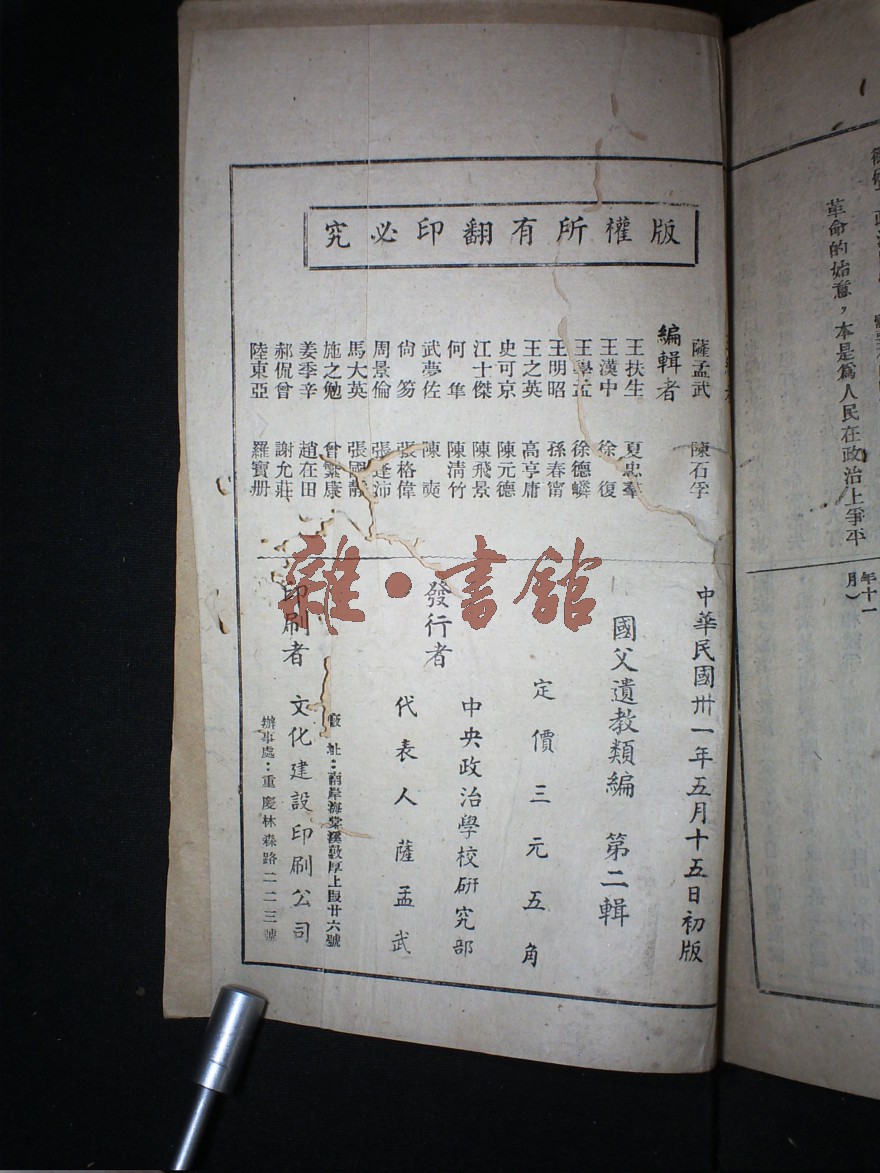 版權所有翻印必究
薩孟武 陳石孚
編輯者
王扶生 夏忠羣
王漢中 徐 復
王學孟 徐德嶙
王明昭 孫春甯
王之英 高亨庸
史可京 陳元德
江士傑 陳飛景
何 隼 陳清竹
武夢佐 陳 奭
尙 笏 張格偉
周景倫 張逢沛
馬大英 張國靜
施之勉 曾繁康
姜季辛 趙在田
郝侃曾 謝允莊
陸東亞 羅寶册
中華民國卅一年五月十五日初版
國父遺教類編 第二輯
定價三元五角
發行者 中央政治學校研究部
代表人 薩孟武
印刷者 文化建設印刷公司
廠址：南岸海棠溪敦厚上段廿六號
辦事處：重慶林森路二二三號
雜·書館
革命的始意，本是爲人民在政治上爭平
年十一
月）